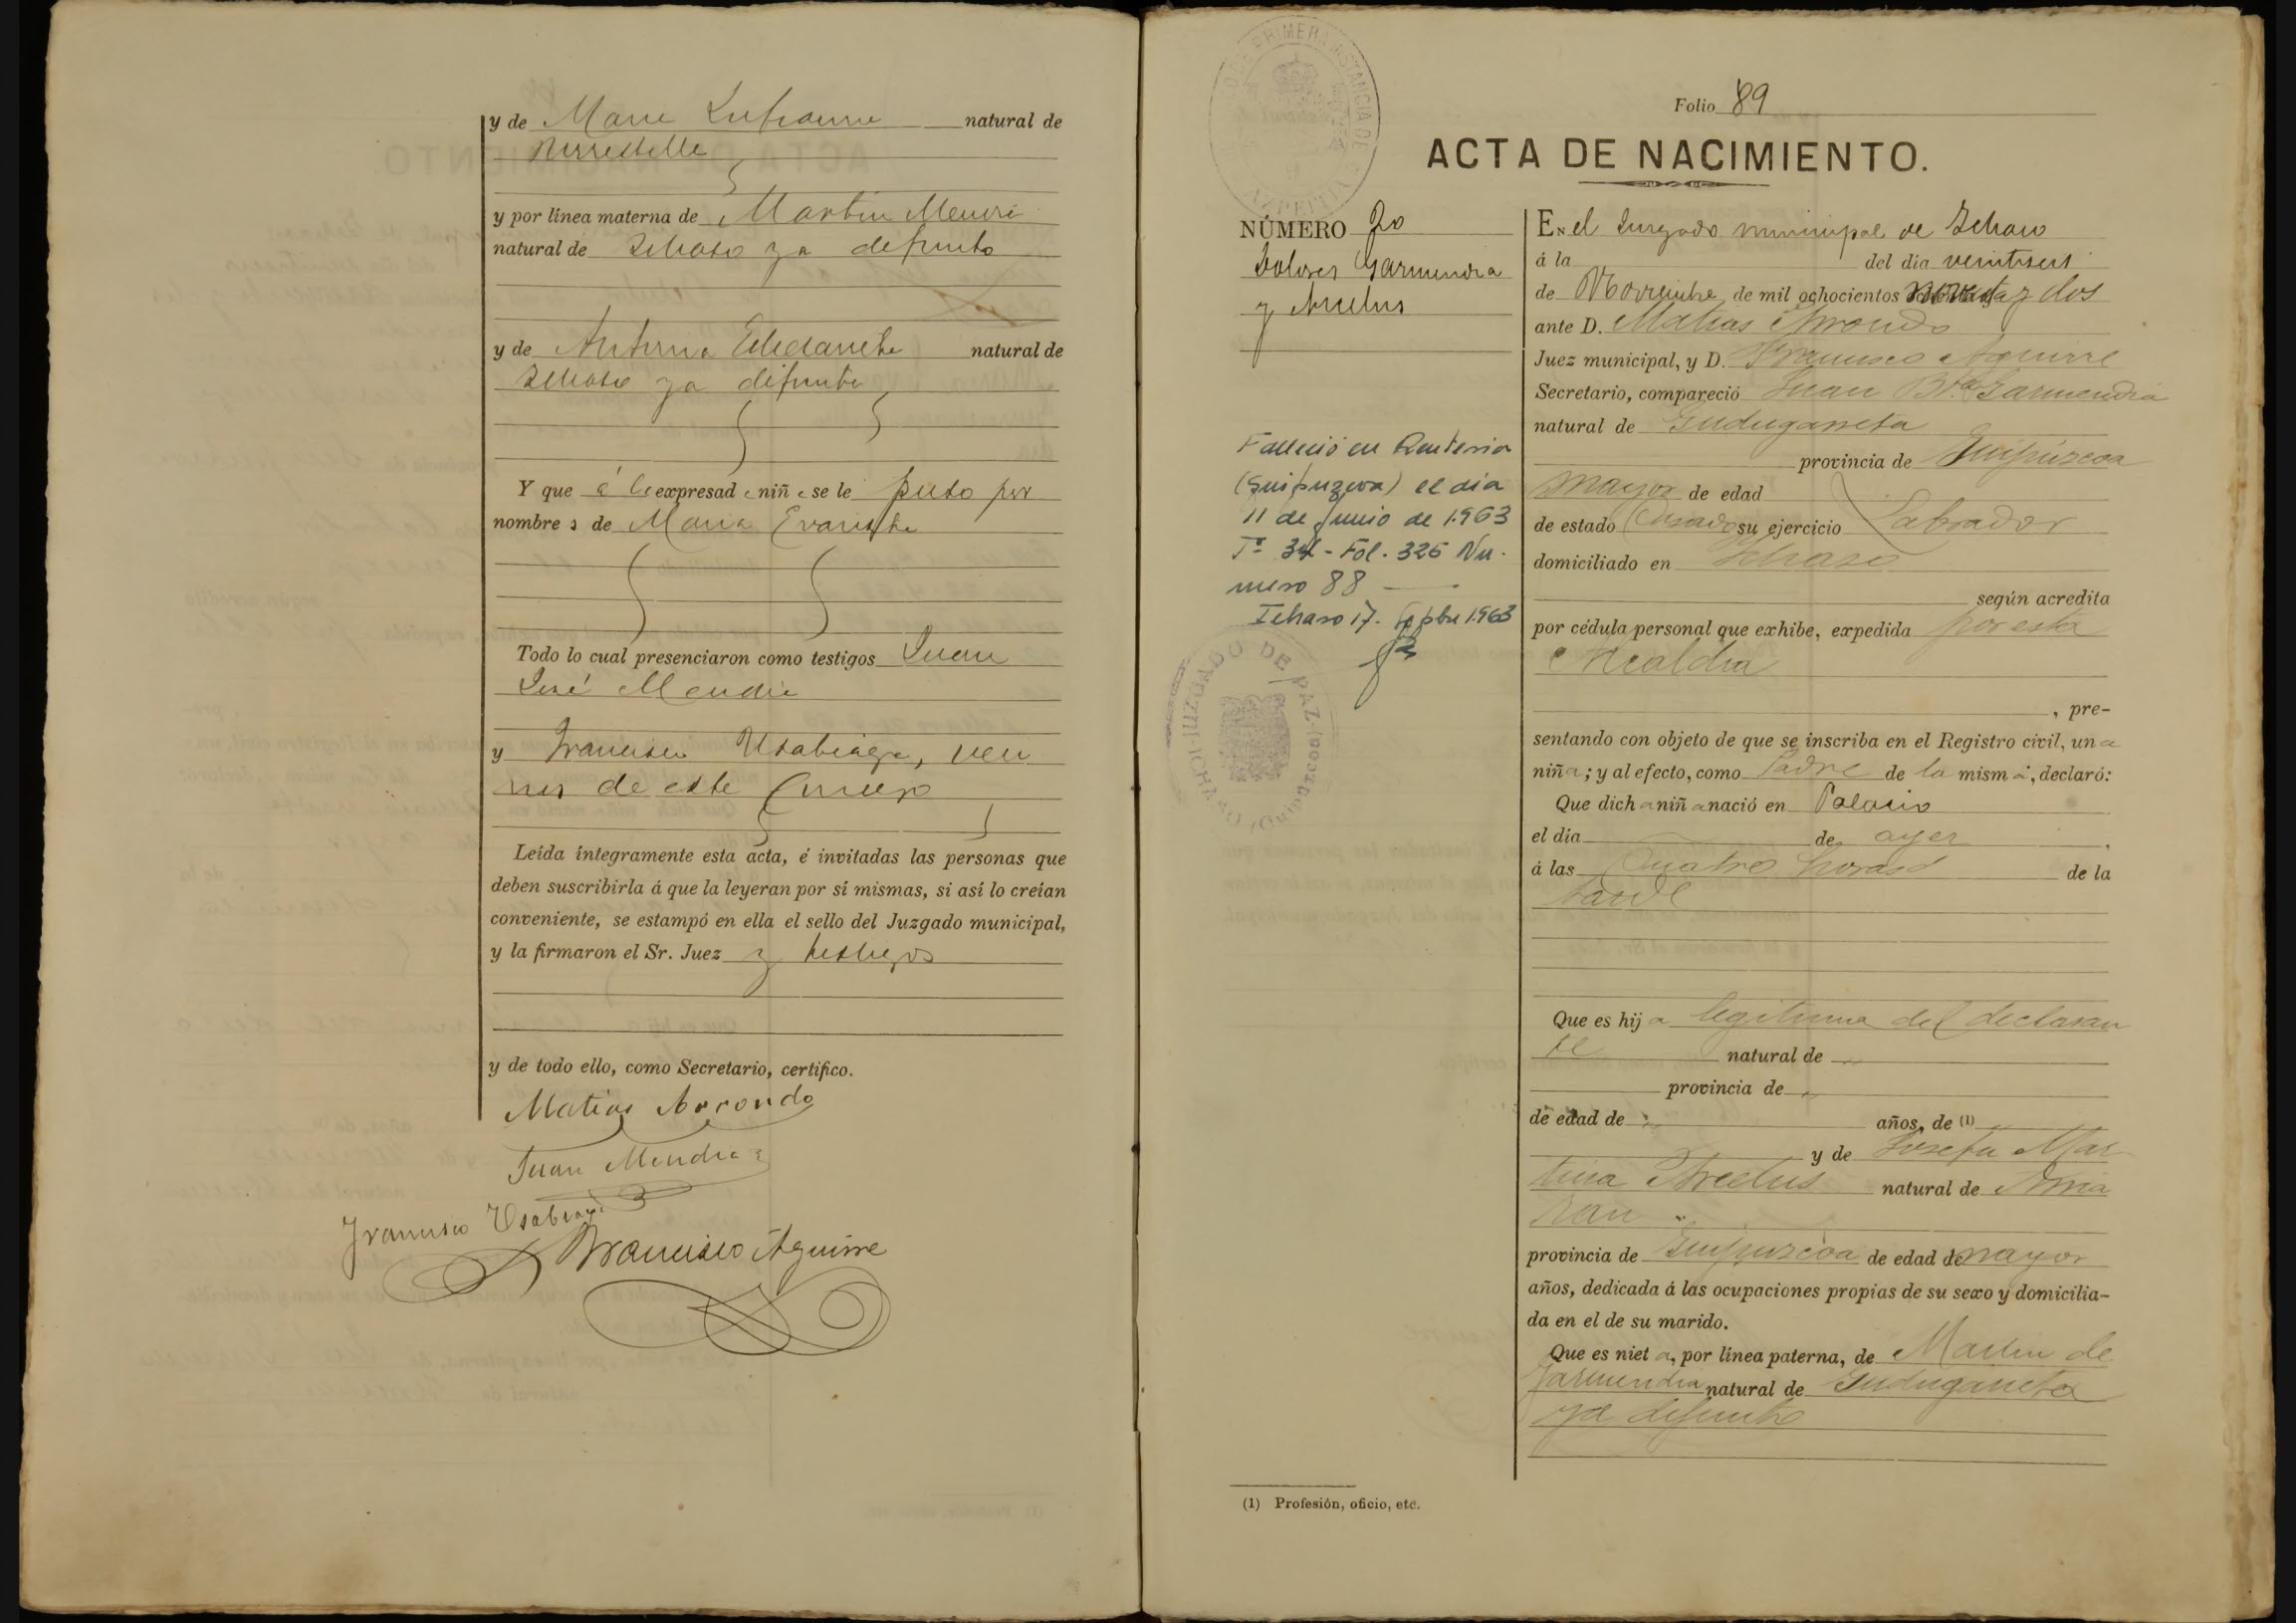 y de Maria natural de
y por línea materna de Martin Mendia
natural de Ichaso ya defunto
y de Antonia natural de
Ichaso ya difunta
Y que á la expresad a niñ a se le puso por
nombre s de Maria Evarista
Todo lo cual presenciaron como testigos Juan
José Mendia
y Francisco Usabiaga, veci
nos de este
Leída íntegramente esta acta, é invitadas las personas que
deben suscribirla á que la leyeran por sí mismas, si así lo creían
conveniente, se estampó en ella el sello del Juzgado municipal,
y la firmaron el Sr. Juez y testigos
y de todo ello, como Secretario, certifico.
Matias Arrondo
Juan Mendia
Francisco Usabiaga
Francisco Aguirre
PRIMERA INSTANCIA DE AZPEITIA
Folio 89
ACTA DE NACIMIENTO.
NÚMERO 20
Dolores Garmendia
y
Falleció en Renteria
(Guipuzcoa) el día
11 de Junio de 1.963
Tº 34 - Fol. 326 Nu-
mero 88
Ichaso 17. Sepbre 1.963
JUZGADO DE PAZ
ICHASO (Guipuzcoa)
En el Juzgado municipal de Ichaso
á la del día veintiseis
de Noviembre de mil ochocientos noventa y dos
ante D. Matias Arrondo
Juez municipal, y D. Francisco Aguirre
Secretario, compareció Juan Bta Garmendia
natural de Gudugarreta
provincia de Guipúzcoa
mayor de edad
de estado Casado su ejercicio Labrador
domiciliado en Ichaso
según acredita
por cédula personal que exhibe, expedida por esta
Alcaldia
, pre-
sentando con objeto de que se inscriba en el Registro civil, un a
niñ a; y al efecto, como Padre de la mism a, declaró:
Que dich a niñ a nació en Palacio
el día de ayer
á las Cuatro horas de la
tarde
Que es hij a legitima del declaran
te natural de "
provincia de "
de edad de " años, de (1)
y de Josefa Mar
tina natural de Arria
ran
provincia de Guipuzcoa de edad de mayor
años, dedicada á las ocupaciones propias de su sexo y domicilia-
da en el de su marido.
Que es niet a, por línea paterna, de Martin de
Garmendia natural de Gudugarreta
ya difunto
(1) Profesión, oficio, etc.